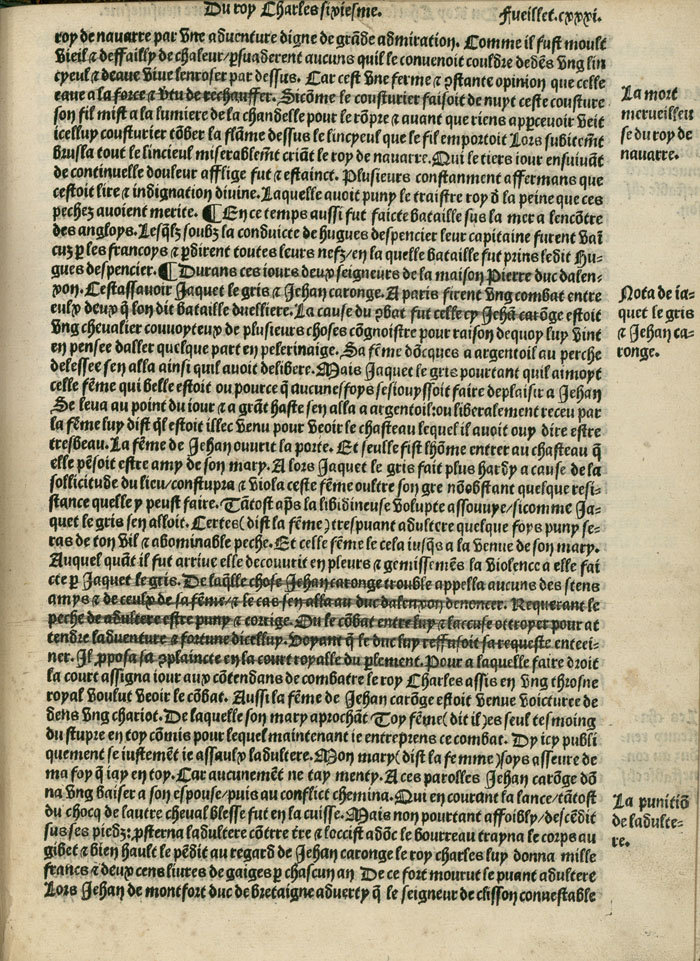 Du roy Charles sixiesme.
Fueillet.cxxxi.
roy de nauarre par vne aduenture digne de grãde admiration. Comme il fust moult
vieil & deffailly de chaleur/psuaderent aucuns quil le conuenoit couldre dedẽs vng lin
cyeul & deaue viue lenroser par dessus. Car cest vne ferme & ꝯstante opinion que celle
eaue a la force & ṽtu de rechauffer. Sicõme le cousturier faisoit de nuyt ceste cousture
son fil mist a la lumiere de la chandelle pour le rõpre & auant que riens apperceuoir veit
icelluy cousturier tõber la flãme dessus le lincyeul que le fil emportoit Lors subitemẽt
brusla tout le lincieul miserablemẽt criãt le roy de nauarre. Qui le tiers iour ensuiuãt
de continuelle douleur afflige fut & estainct. Plusieurs constanment affermans que
cestoit lire & indignation diuine. Laquelle auoit puny le traistre roy ð la peine que ces
pechez auoient merite. ¶ En ce temps aussi fut faicte bataille sus la mer a lencõtre
des angloys. Lesq̃lz soubz la conduicte de hugues despencier leur capitaine furent vaĩ
cuz p les francoys & pdirent toutes leurs nefz/en la quelle bataille fut prins ledit Hu-
gues despencier. ¶ Durans ces iours deux seigneurs de la maison Pierre duc dalen-
xon. Cestassauoir Jaquet le gris & Jehan caronge. A paris firent vng combat entre
eulx deux q̃ lon dit bataille duelliere. La cause du ꝯbat fut celle cy Jehã carõge estoit
vng cheualier conuoyteux de plusieurs choses cõgnoistre pour raison dequoy luy vint
en pensee daller quelque part en pelerinaige. Sa fẽme dõcques a argentoil au perche
delessee sen alla ainsi quil auoit delibere. Mais Jaquet le gris pourtant quil aimoyt
celle fẽme qui belle estoit ou pource q̃ aucunesfoys sesiouyssoit faire deplaisir a Jehan
Se leua au point du iour & a grãt haste sen alla a argentoil: ou liberalement receu par
la fẽme luy dist q̃l estoit illec venu pour veoir le chasteau lequel il auoit ouy dire estre
tresbeau. La fẽme de Jehan ouurit la porte. Et seulle fist lhõme entrer au chasteau q̃
elle pẽsoit estre amy de son mary. A lors Jaquet le gris fait plus hardy a cause de la
sollicitude du lieu/constupra & viola ceste fẽme oultre son gre nõobstant quelque resi-
stance quelle y peust faire. Tãtost aps la libidineuse volupte assouuye/sicomme Ja-
quet le gris sen alloit. Certes (dist la fẽme) trespuant adultere quelque foys puny se-
ras de ton vil & abominable peche. Et celle fẽme le cela iusq̃s a la venue de son mary.
Auquel quãt il fut arriue elle decouurit en pleurs & gemissemẽs la violence a elle fai
cte p Jaquet le gris. De laq̃lle chose Jehan caronge trouble appella aucuns des siens
amys & de ceulx de sa fẽme/& le cas sen alla au duc dalenxon denoncer. Requerant le
peche de adultere estre puny & corrige. Ou le cõbat entre luy & laccuse ottroyer pour at
tendre laduenture & fortune dicelluy. Voyant q̃ le duc luy reffusoit sa requeste enteri-
ner. Il pposa sa ꝯplaincte en la court royalle du plement. Pour a laquelle faire droit
la court assigna iour aux cõtendans de combatre le roy Charles assis en vng throsne
royal voulut veoir le cõbat. Aussi la fẽme de Jehan carõge estoit venue voicturee de
dens vng chariot. De laquelle son mary aprochãt Toy fẽme (dit il) es seul tesmoing
du stupre en toy cõmis pour lequel maintenant ie entreprens ce combat. Dy icy publi
quement se iustemẽt ie assaulx ladultere. Mon mary (dist la femme) soys asseure de
ma foy q̃ iay en toy. Car aucunemẽt ne tay menty. A ces parolles Jehan carõge dõ
na vng baiser a son espouse/puis au conflict chemina. Qui en courant la lance/tãtost
du chocq de lautre cheual blesse fut en la cuisse. Mais non pourtant affoibly/descẽdit
sus ses piedz: psterna ladultere cõtre tre & loccist adõc le bourreau trayna le corps au
gibet & bien hault le pẽdit au regard de Jehan caronge le roy charles luy donna mille
francs & deux cens liures de gaiges p chascun an De ce fort mourut le puant adultere
Lors Jehan de montfort duc de bretaigne aduerty q̃ le seigneur de clisson connestable
La mort
merueilleu
se du roy de
nauarre.
Nota de ia-
quet le gris
& Jehan ca-
ronge.
La punitiõ
de ladulte-
re.